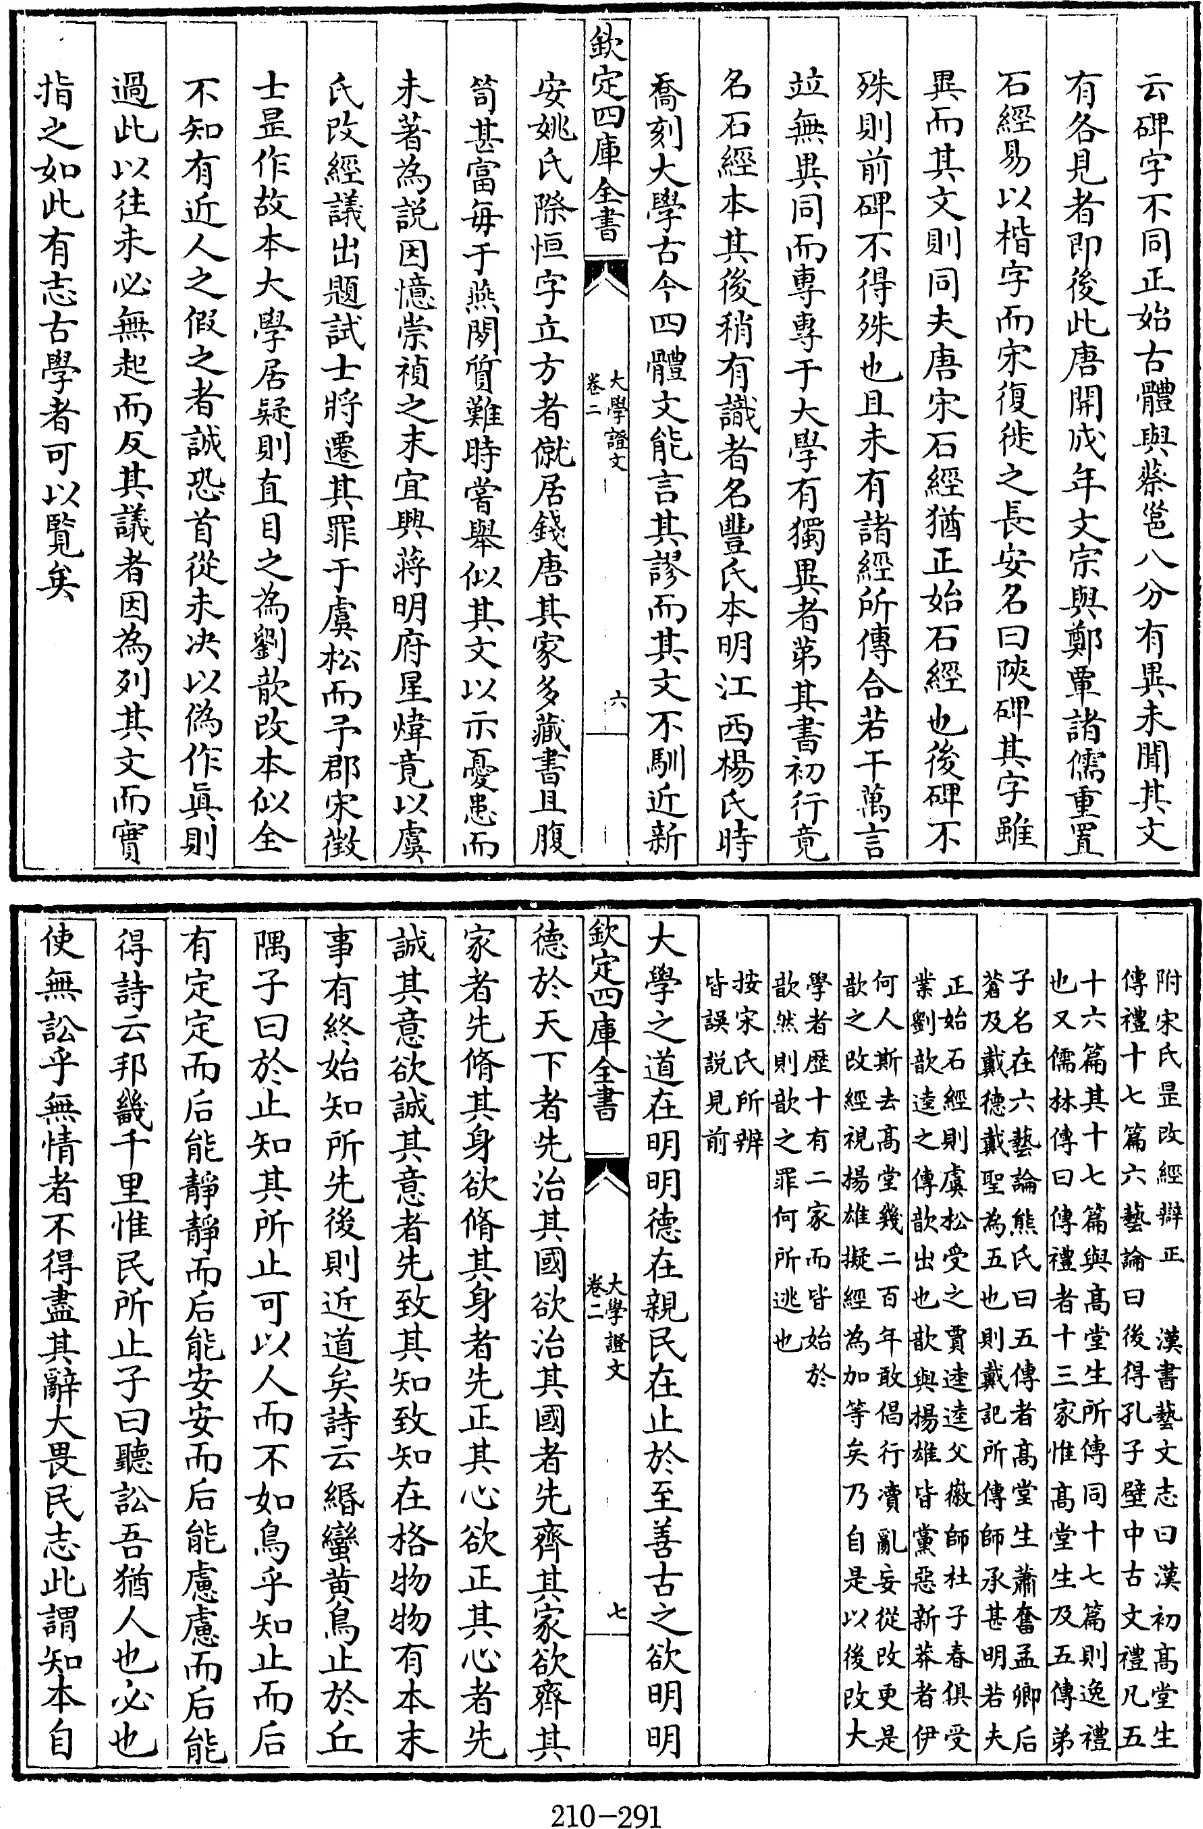 云碑字不同正始古體與蔡邕八分有異未聞其文
有各見者即後此唐開成年文宗與鄭覃諸儒重置
石經易以楷字而宋復徙之長安名曰陜碑其字雖
異而其文則同夫唐宋石經猶正始石經也後碑不
殊則前碑不得殊也且未有諸經所傳合若干萬言
竝無異同而專專于大學有獨異者苐其書初行竟
名石經本其後稍有識者名豐氏本明江西楊氏時
喬刻大學古今四體文能言其謬而其文不馴近新
欽定四庫全書
大學證文
卷二
六
安姚氏際恒字立方者僦居錢唐其家多藏書且腹
笥甚富每于燕閒質難時嘗舉似其文以示憂患而
未著為説因憶崇禎之末宜興蔣明府星煒竟以虞
氏改經議出題試士將遷其罪于虞松而予郡宋徵
士昰作故本大學居疑則直目之為劉歆改本似全
不知有近人之假之者誠恐首從未决以偽作真則
過此以往未必無起而反其議者因為列其文而實
指之如此有志古學者可以覧矣
附宋氏昰改經辯正　漢書藝文志曰漢初髙堂生
傳禮十七篇六藝論曰後得孔子壁中古文禮凡五
十六篇其十七篇與髙堂生所傳同十七篇則逸禮
也又儒林傳曰傳禮者十三家惟髙堂生及五傳弟
子名在六藝論熊氏曰五傳者髙堂生蕭奮孟卿后
蒼及戴德戴聖為五也則戴記所傳師承甚明若夫
正始石經則虞松受之賈逵逵父徽師杜子春俱受
業劉歆逵之傳歆出也歆與楊雄皆黨惡新莽者伊
何人斯去髙堂幾二百年敢倡行凟亂妄從改更是
歆之改經視揚雄擬經為加等矣乃自是以後改大
學者歴十有二家而皆始於
歆然則歆之罪何所逃也
按宋氏所辨
皆誤説見前
大學之道在明明德在親民在止於至善古之欲明明
欽定四庫全書
大學證文
卷二
七
德於天下者先治其國欲治其國者先齊其家欲齊其
家者先脩其身欲脩其身者先正其心欲正其心者先
誠其意欲誠其意者先致其知致知在格物物有本末
事有終始知所先後則近道矣詩云緡蠻黄鳥止於丘
隅子曰於止知其所止可以人而不如鳥乎知止而后
有定定而后能靜靜而后能安安而后能慮慮而后能
得詩云邦畿千里惟民所止子曰聽訟吾猶人也必也
使無訟乎無情者不得盡其辭大畏民志此謂知本自
210-291